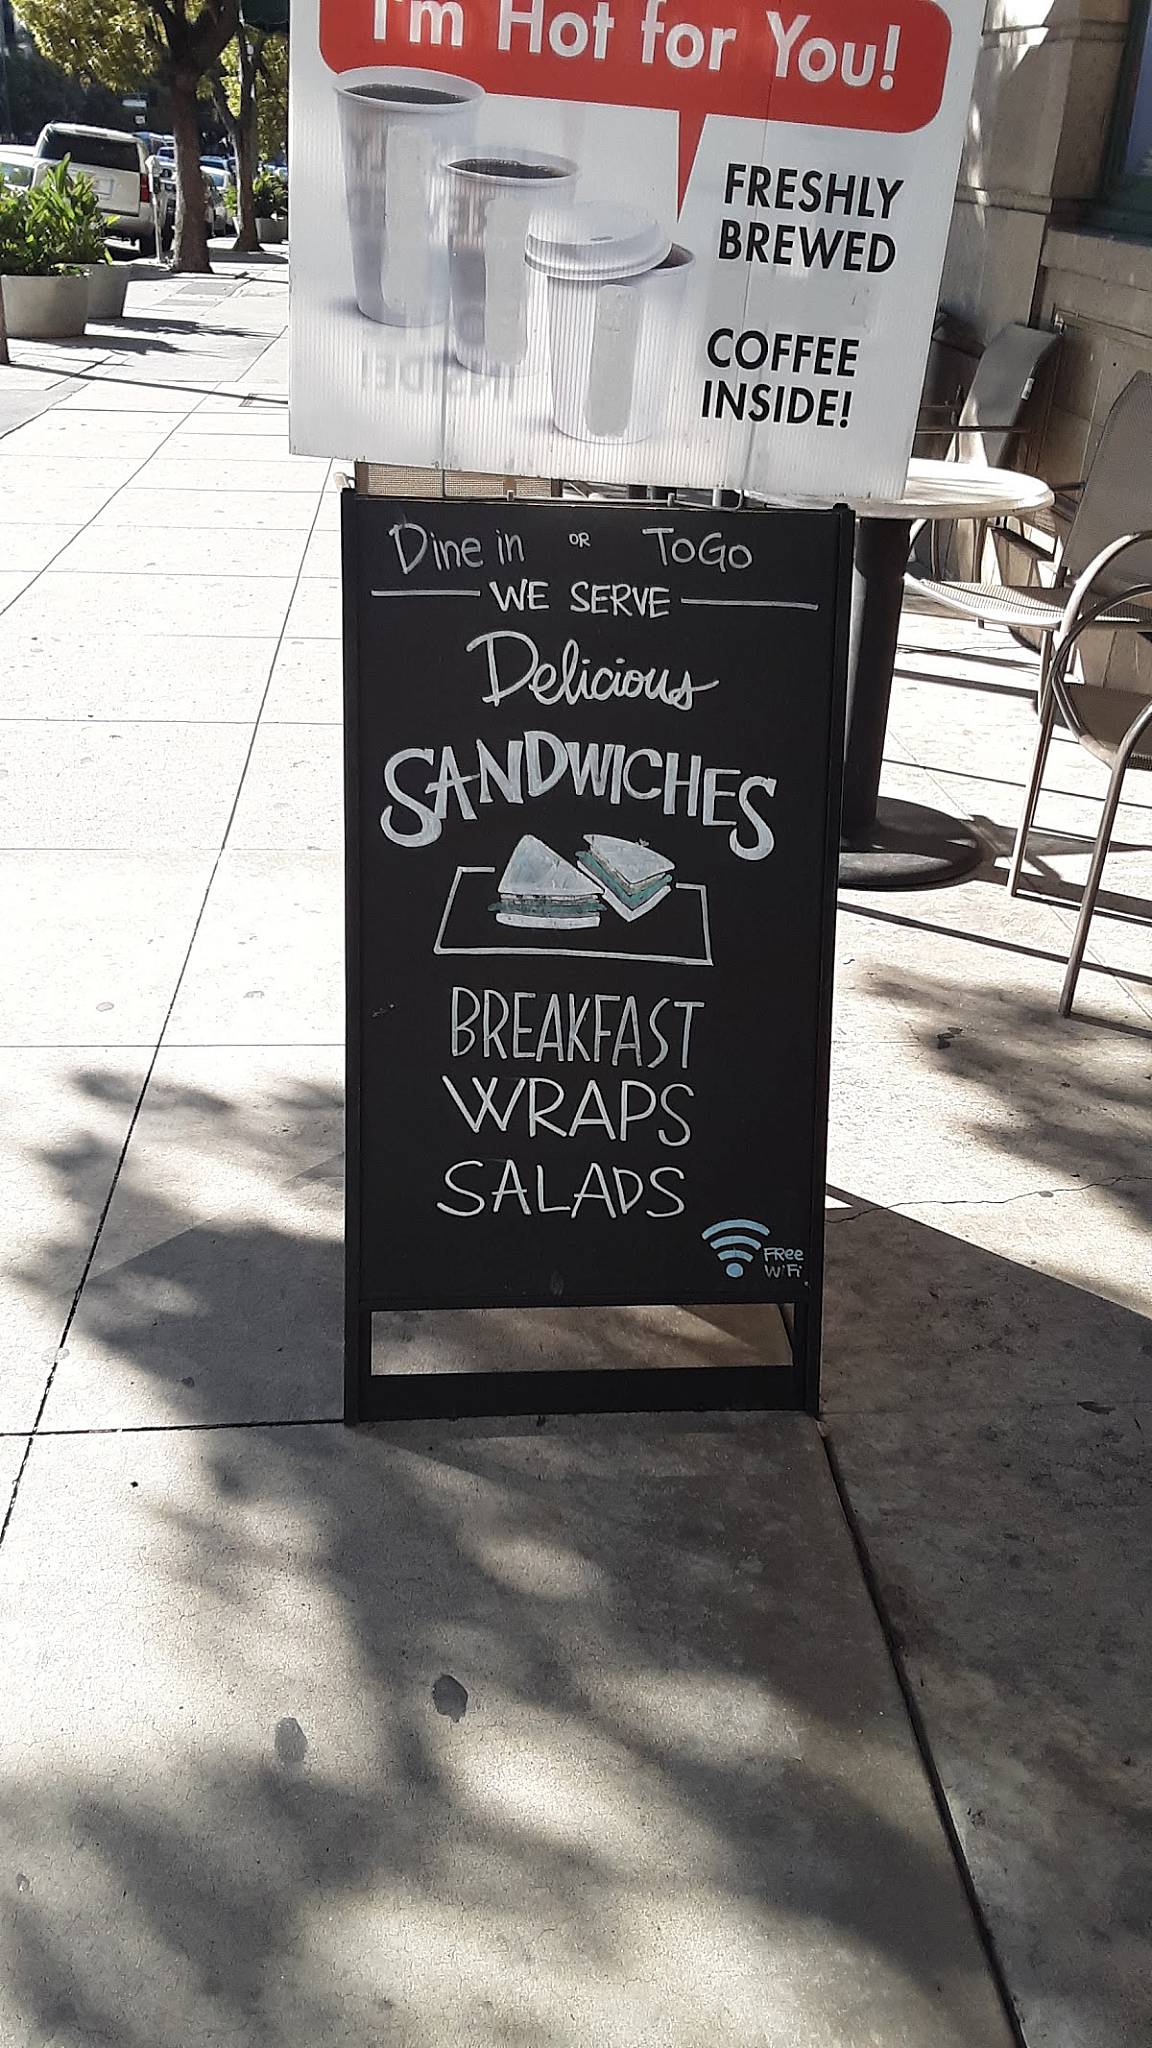 I'm Hot for You!
FRESHLY
BREWED
COFFEE
INSIDE!
Dine in OR ToGo
WE SERVE
Delicious
SANDWICHES
BREAKFAST
WRAPS
SALADS
FRee
WiFi